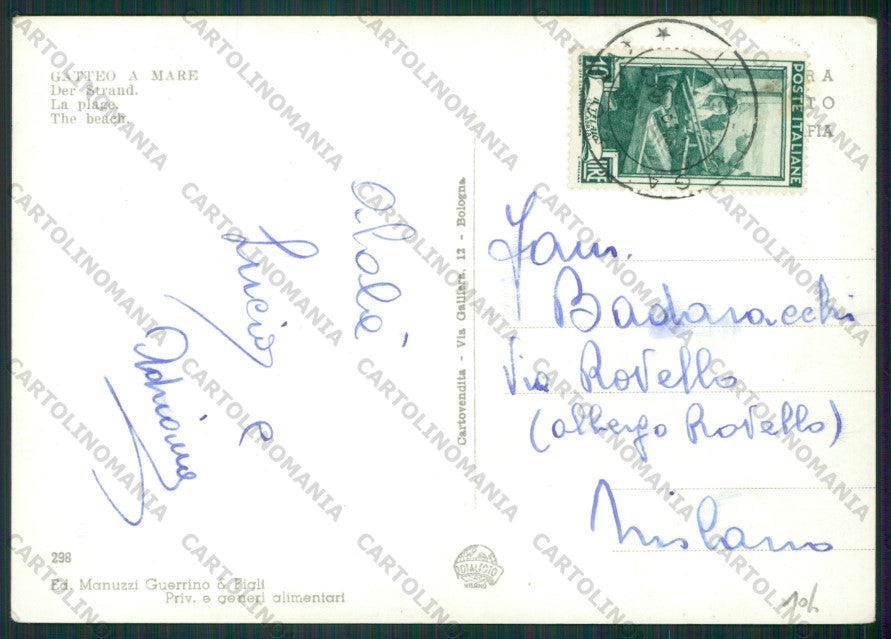 GATTEO A MARE
Der Strand.
La plage.
The beach.
Lucio e
Adriana
298
Ed. Manuzzi Guerrino & Figli
Priv. e generi alimentari
Cartovendita - Via Galliera, 12 - Bologna
POSTE ITALIANE
10
LIRE
RA
TO
FIA
Fam.
Badaracchi
Via Rovello
(albergo Rovello)
Milano
TOTALFOTO
MILANO
CARTOLINOMANIA